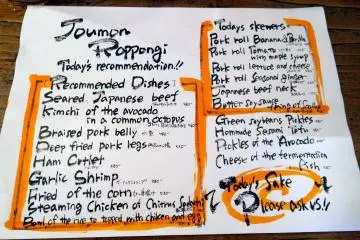 Joumon
Roppongi
Today's recommendation!!
Recommended Dishes
Seared Japanese beef
Kimchi of the avocado
in a common octopus
Braised pork belly
Deep fried pork legs
Ham Cutlet
Garlic Shrimp
Fried of the corn
Steaming Chicken of Chitrus
Bowl of the rice to topped with chicken and egg
Today's skewers
Pork roll Banana
Pork roll Tomato
with maple syrup
Pork roll lettuce and cheese
Pork roll Seasonal ginger
Japanese beef neck
Butter soy sauce
Green soybeans Pickles
Hommade Sesami Tofu
Pickles of the Avocado
Cheese of the fermentation
Fish
Today's Sake
Please ask us!!